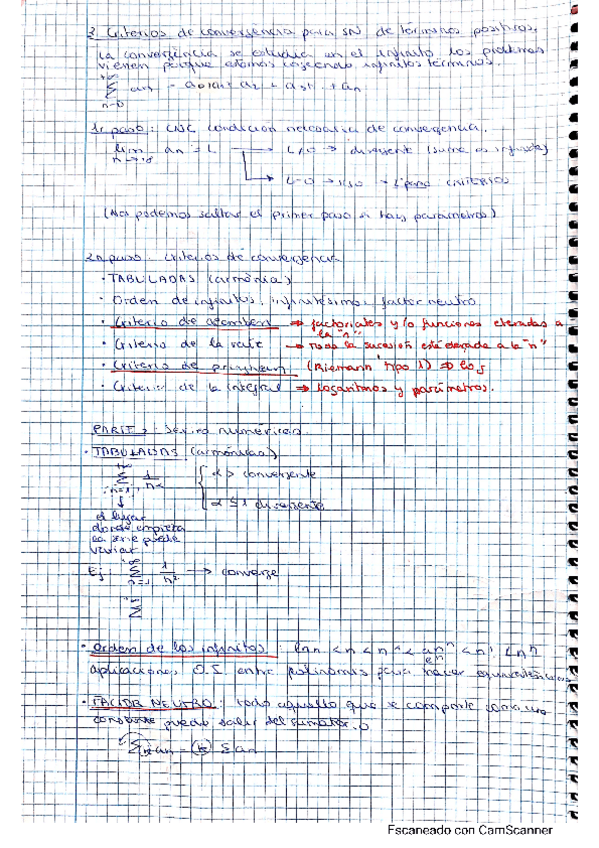 3. Criterios de convergencia para SN de términos positivos.
La convergencia se estudia en el infinito los problemas
vienen porque estamos cogiendo infinitos términos.
+∞
∑ an = a0+a1+a2+a3+..+an
n=0
1r paso: CNC condición necesaria de convergencia.
lim an = L → L≠0 → divergente (suma es infinito)
n→+∞
→ L=0 → CRITERIOS
(Nos podemos saltar el primer paso si hay parámetros)
2n paso: criterios de convergencia
· TABULADAS (armónica)
· Orden de infinitos, infinitésimos, factor neutro.
· Criterio de ⇒ factoriales y/o funciones elevadas a
la "n"
· Criterio de la raíz → toda la sucesión está elevada a la "n"
· Criterio de pringsheim (Riemann tipo 1) ⇒ log
· Criterio de la integral ⇒ logaritmos y parámetros.
PARTE 2: Series numéricas
· TABULADAS (armónicas)
+∞
∑ 1/n^α { α>1 convergente
n=1 { α≤1 divergente
↓
el lugar
donde empieza
la serie puede
variar
Ej: +∞ ∑ n=1 1/n² → converge
∑
· Orden de los infinitos: lnn < n < n^α < a^n < n! < n^n
e^n
aplicaciones O.I entre polinomios para hacer equivalencias
· FACTOR NEUTRO: todo aquello que se comporte como una
constante puede salir del sumatorio
∑ k·an = (k) ∑ an
Escaneado con CamScanner